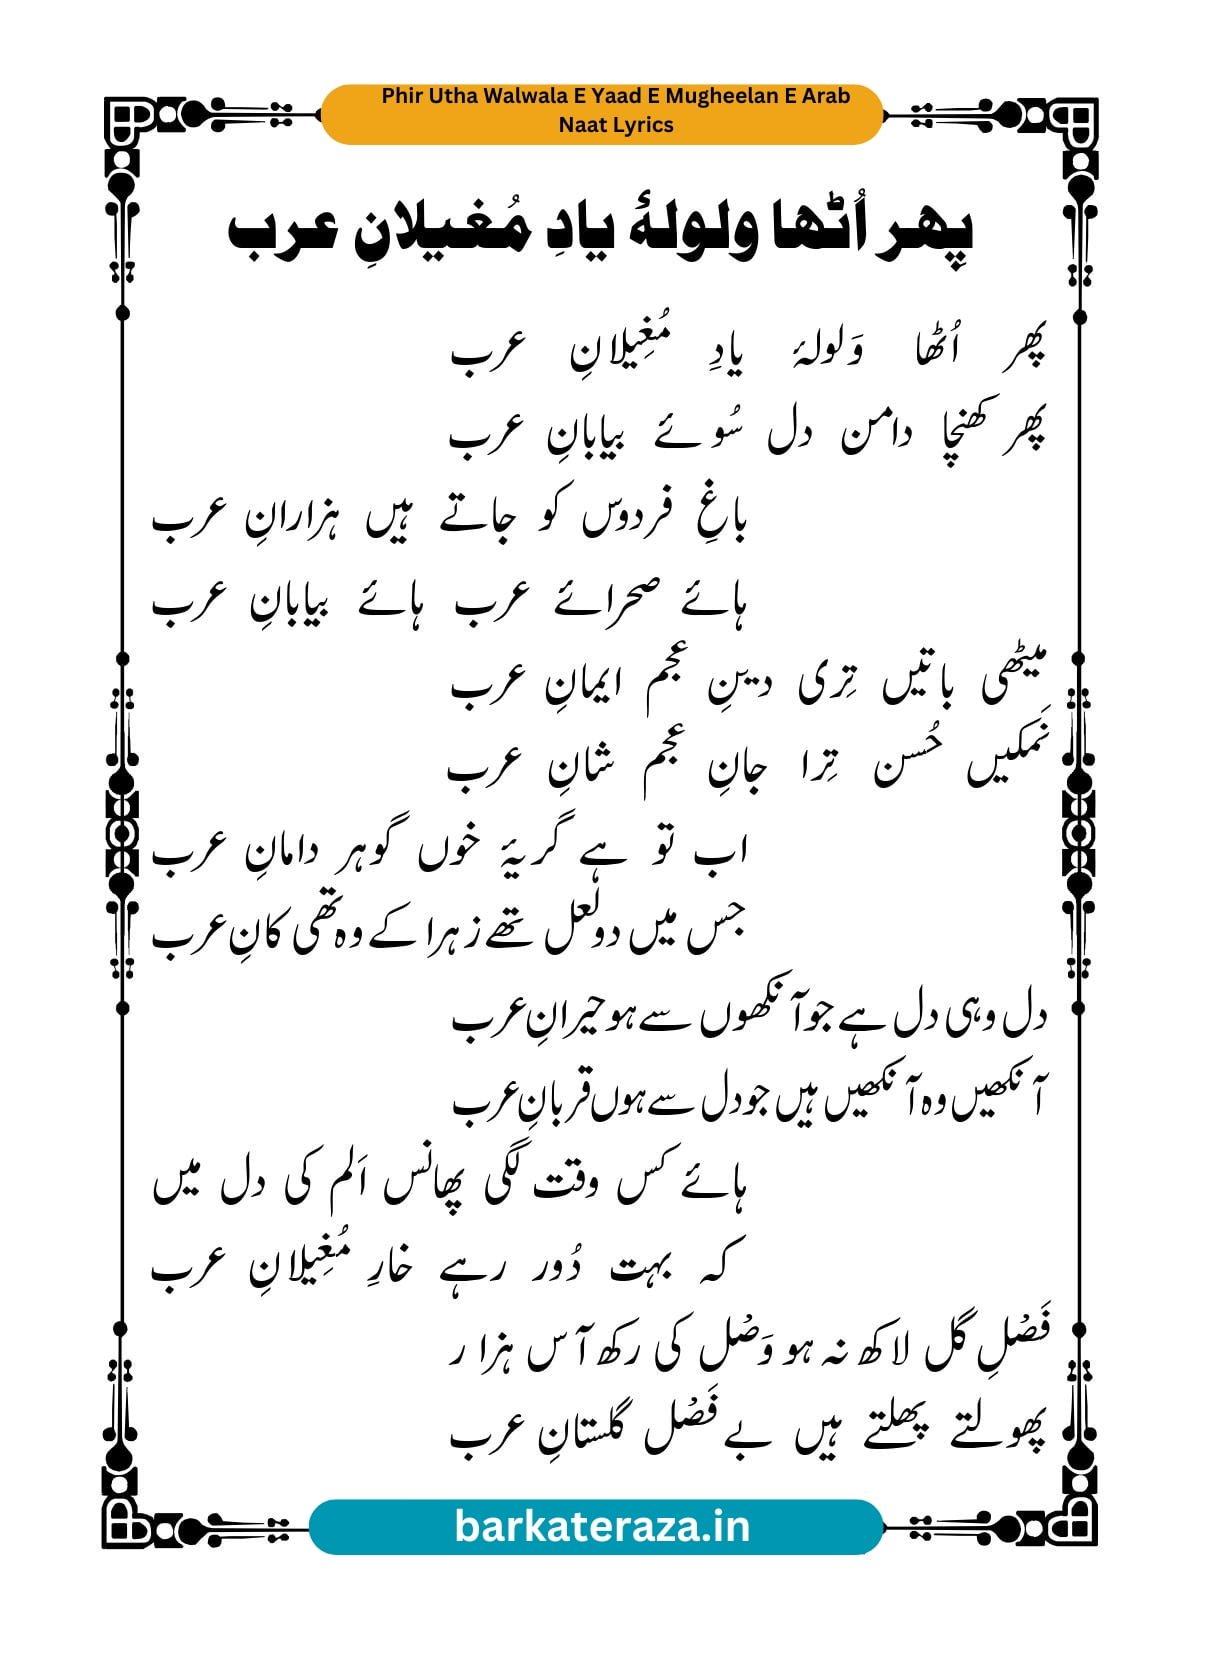 Phir Utha Walwala E Yaad E Mugheelan E Arab
Naat Lyrics
پِھر اُٹھا ولولۂ یادِ مُغیلانِ عرب
پھر اُٹھا وَلولۂ یادِ مُغِیلانِ عرب
پھر کھنچا دامن دل سُوئے بیابانِ عرب
باغِ فردوس کو جاتے ہیں ہزارانِ عرب
ہائے صحرائے عرب ہائے بیابانِ عرب
میٹھی باتیں تِری دینِ عجم ایمانِ عرب
نَمکیں حُسن تِرا جانِ عجم شانِ عرب
اب تو ہے گریۂ خوں گوہر دامانِ عرب
جس میں دو لعل تھے زہرا کے وہ تھی کانِ عرب
دل وہی دل ہے جو آنکھوں سے ہو حیرانِ عرب
آنکھیں وہ آنکھیں ہیں جو دل سے ہوں قربانِ عرب
ہائے کس وقت لگی پھانس اَلم کی دل میں
کہ بہت دُور رہے خارِ مُغِیلانِ عرب
فَصْلِ گل لاکھ نہ ہو وَصْل کی رکھ آس ہزار
پھولتے پھلتے ہیں بے فَصْل گلستانِ عرب
barkateraza.in